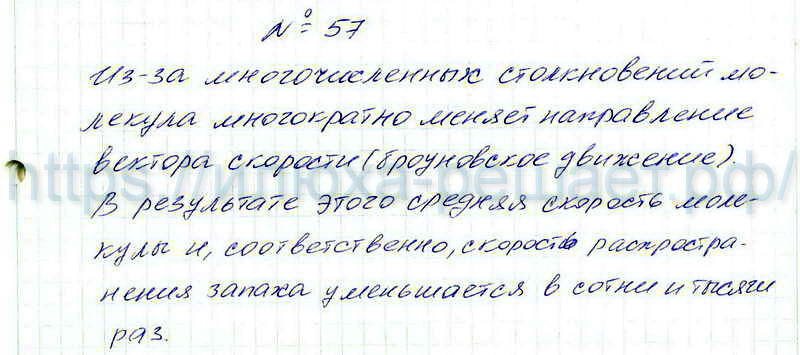 № 57
Из-за многочисленных столкновений мо-
лекула многократно меняет направление
вектора скорости (броуновское движение).
https://илюха-решает.рф/
В результате этого средняя скорость моле-
кулы и, соответственно, скорость распростра-
нения запаха уменьшается в сотни и тысячи
раз.